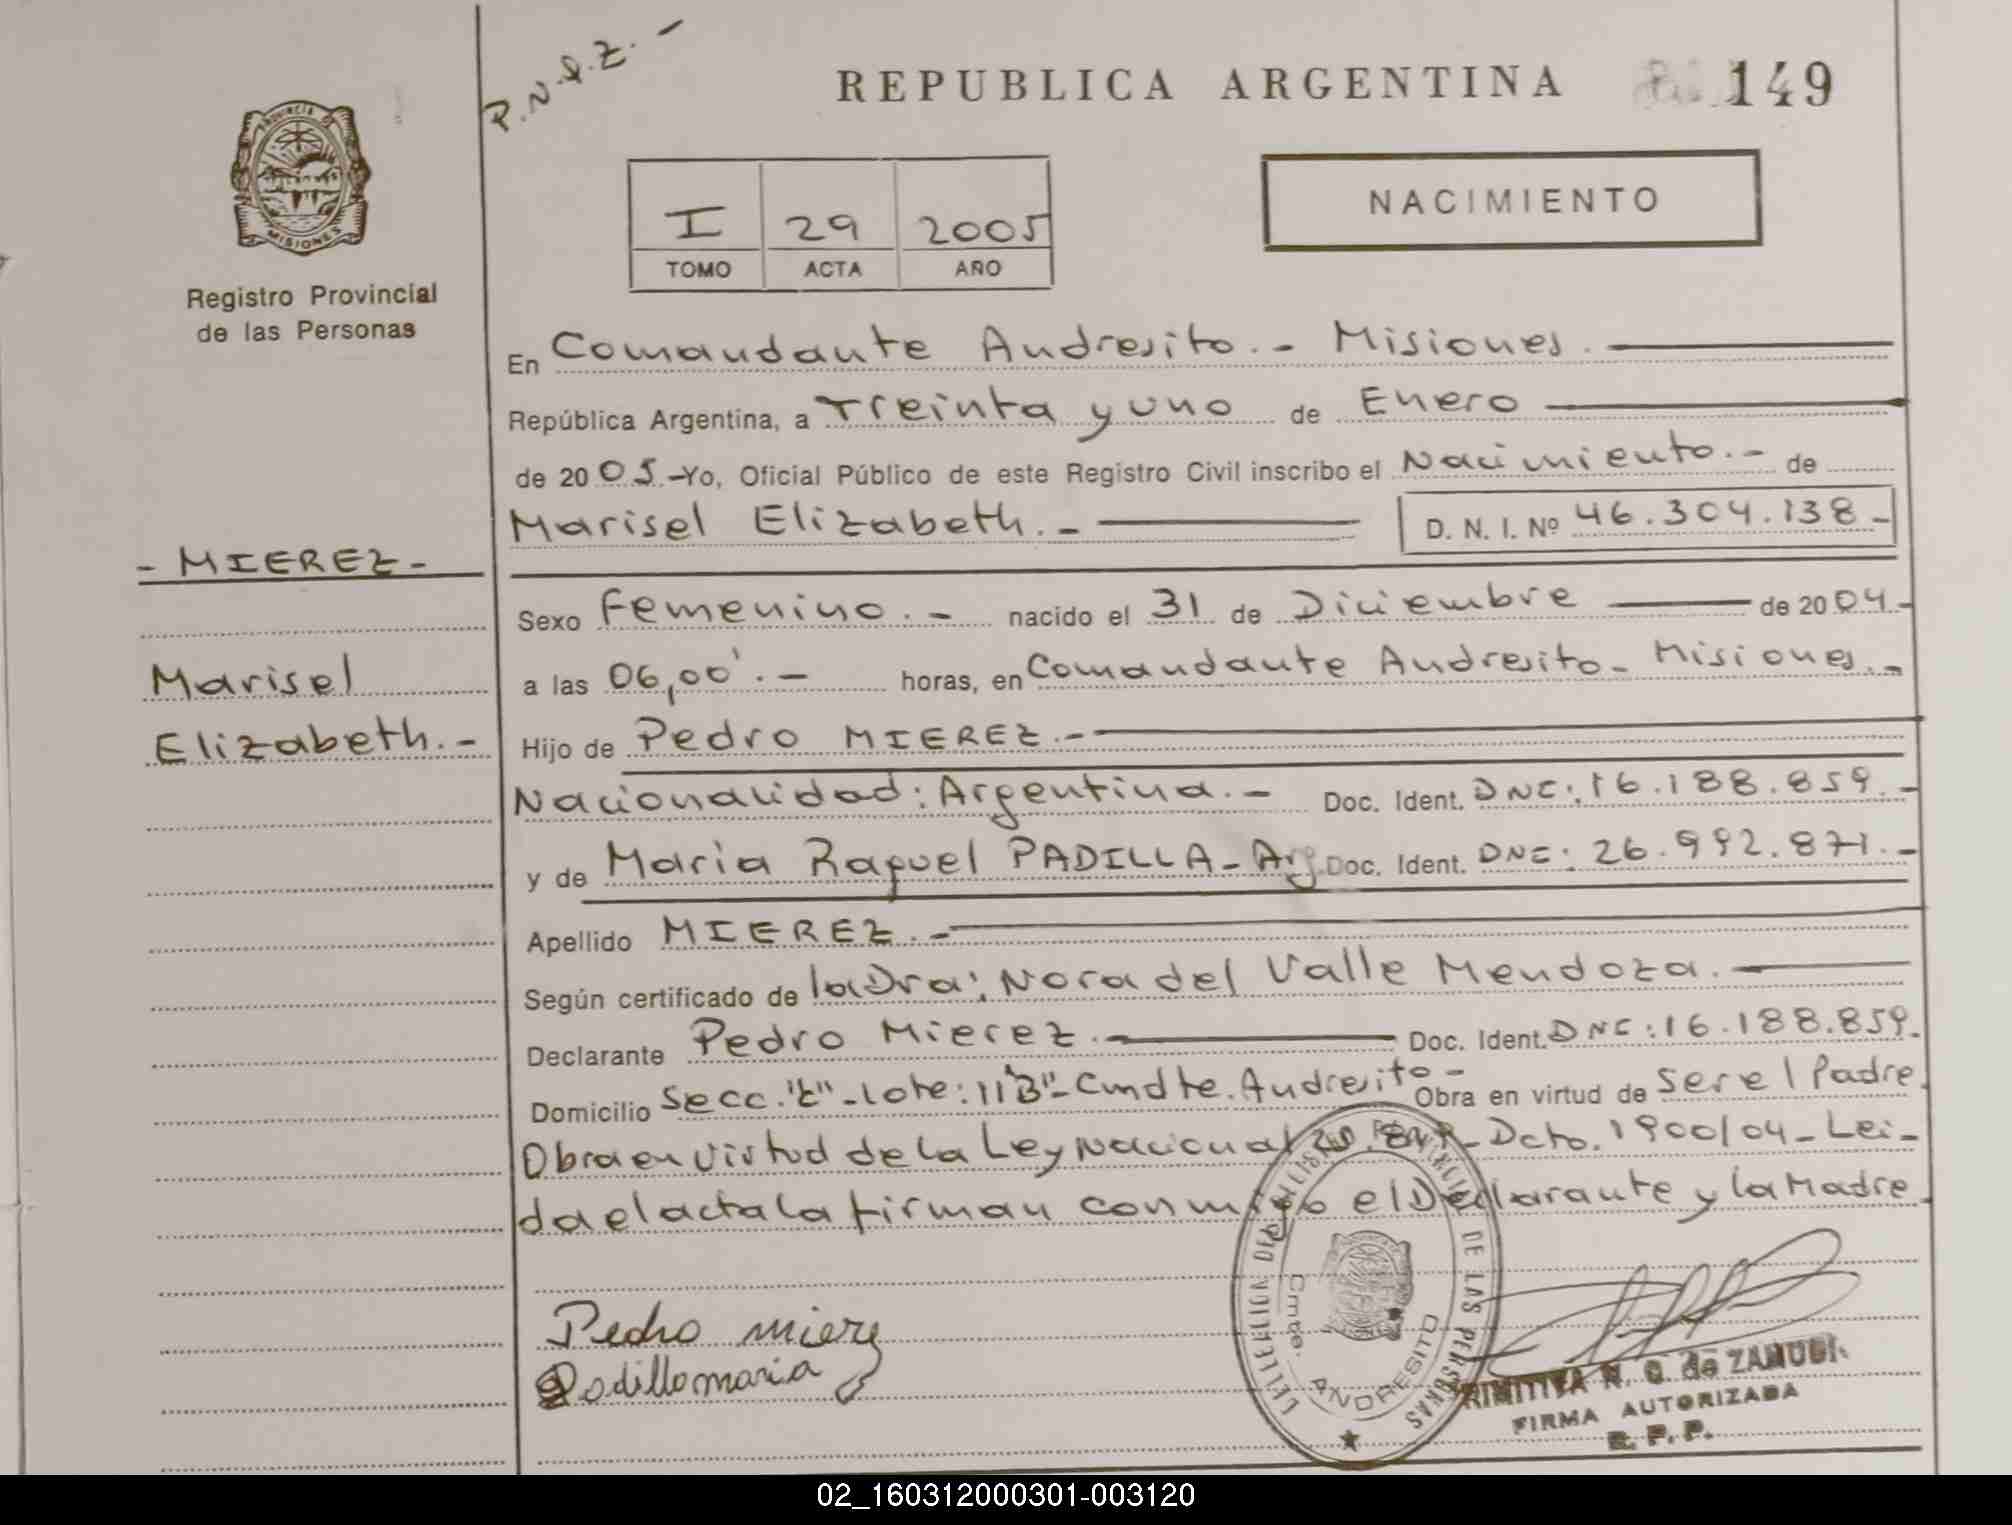 P.N.I.Z. -
REPUBLICA ARGENTINA
149
PROVINCIA DE
MISIONES
Registro Provincial
de las Personas
I 29 2005
TOMO ACTA AÑO
NACIMIENTO
En Comandante Andresito.- Misiones.
República Argentina, a Treinta y uno de Enero
de 2005.-Yo, Oficial Público de este Registro Civil inscribo el Nacimiento.- de
Marisel Elizabeth.- D. N. I. Nº 46.304.138-
- MIEREZ -
Marisel
Elizabeth.-
Sexo Femenino.- nacido el 31 de Diciembre de 2004.-
a las 06,00'.- horas, en Comandante Andresito- Misiones.-
Hijo de Pedro MIEREZ.-
Nacionalidad: Argentina.- Doc. Ident. DNI: 16.188.859.-
y de Maria Raquel PADILLA- Arg. Doc. Ident. DNI: 26.992.871.-
Apellido MIEREZ.-
Según certificado de la Dra: Nora del Valle Mendoza.
Declarante Pedro Mierez. Doc. Ident. DNI: 16.188.859.
Domicilio Secc. "C"- Lote: 11"B"- Cmdte. Andresito- Obra en virtud de Ser el Padre.
Obra en virtud de la Ley Nacional Dcto. 1900/04- Lei-
da el acta la firman conmigo el Declarante y la Madre.
Pedro mierez
Padilla maria
PROVINCIAL DE LAS PERSONAS
Cmte. ANDRESITO
N. G. de ZAMUDI
FIRMA AUTORIZADA
R. P. P.
02_160312000301-003120